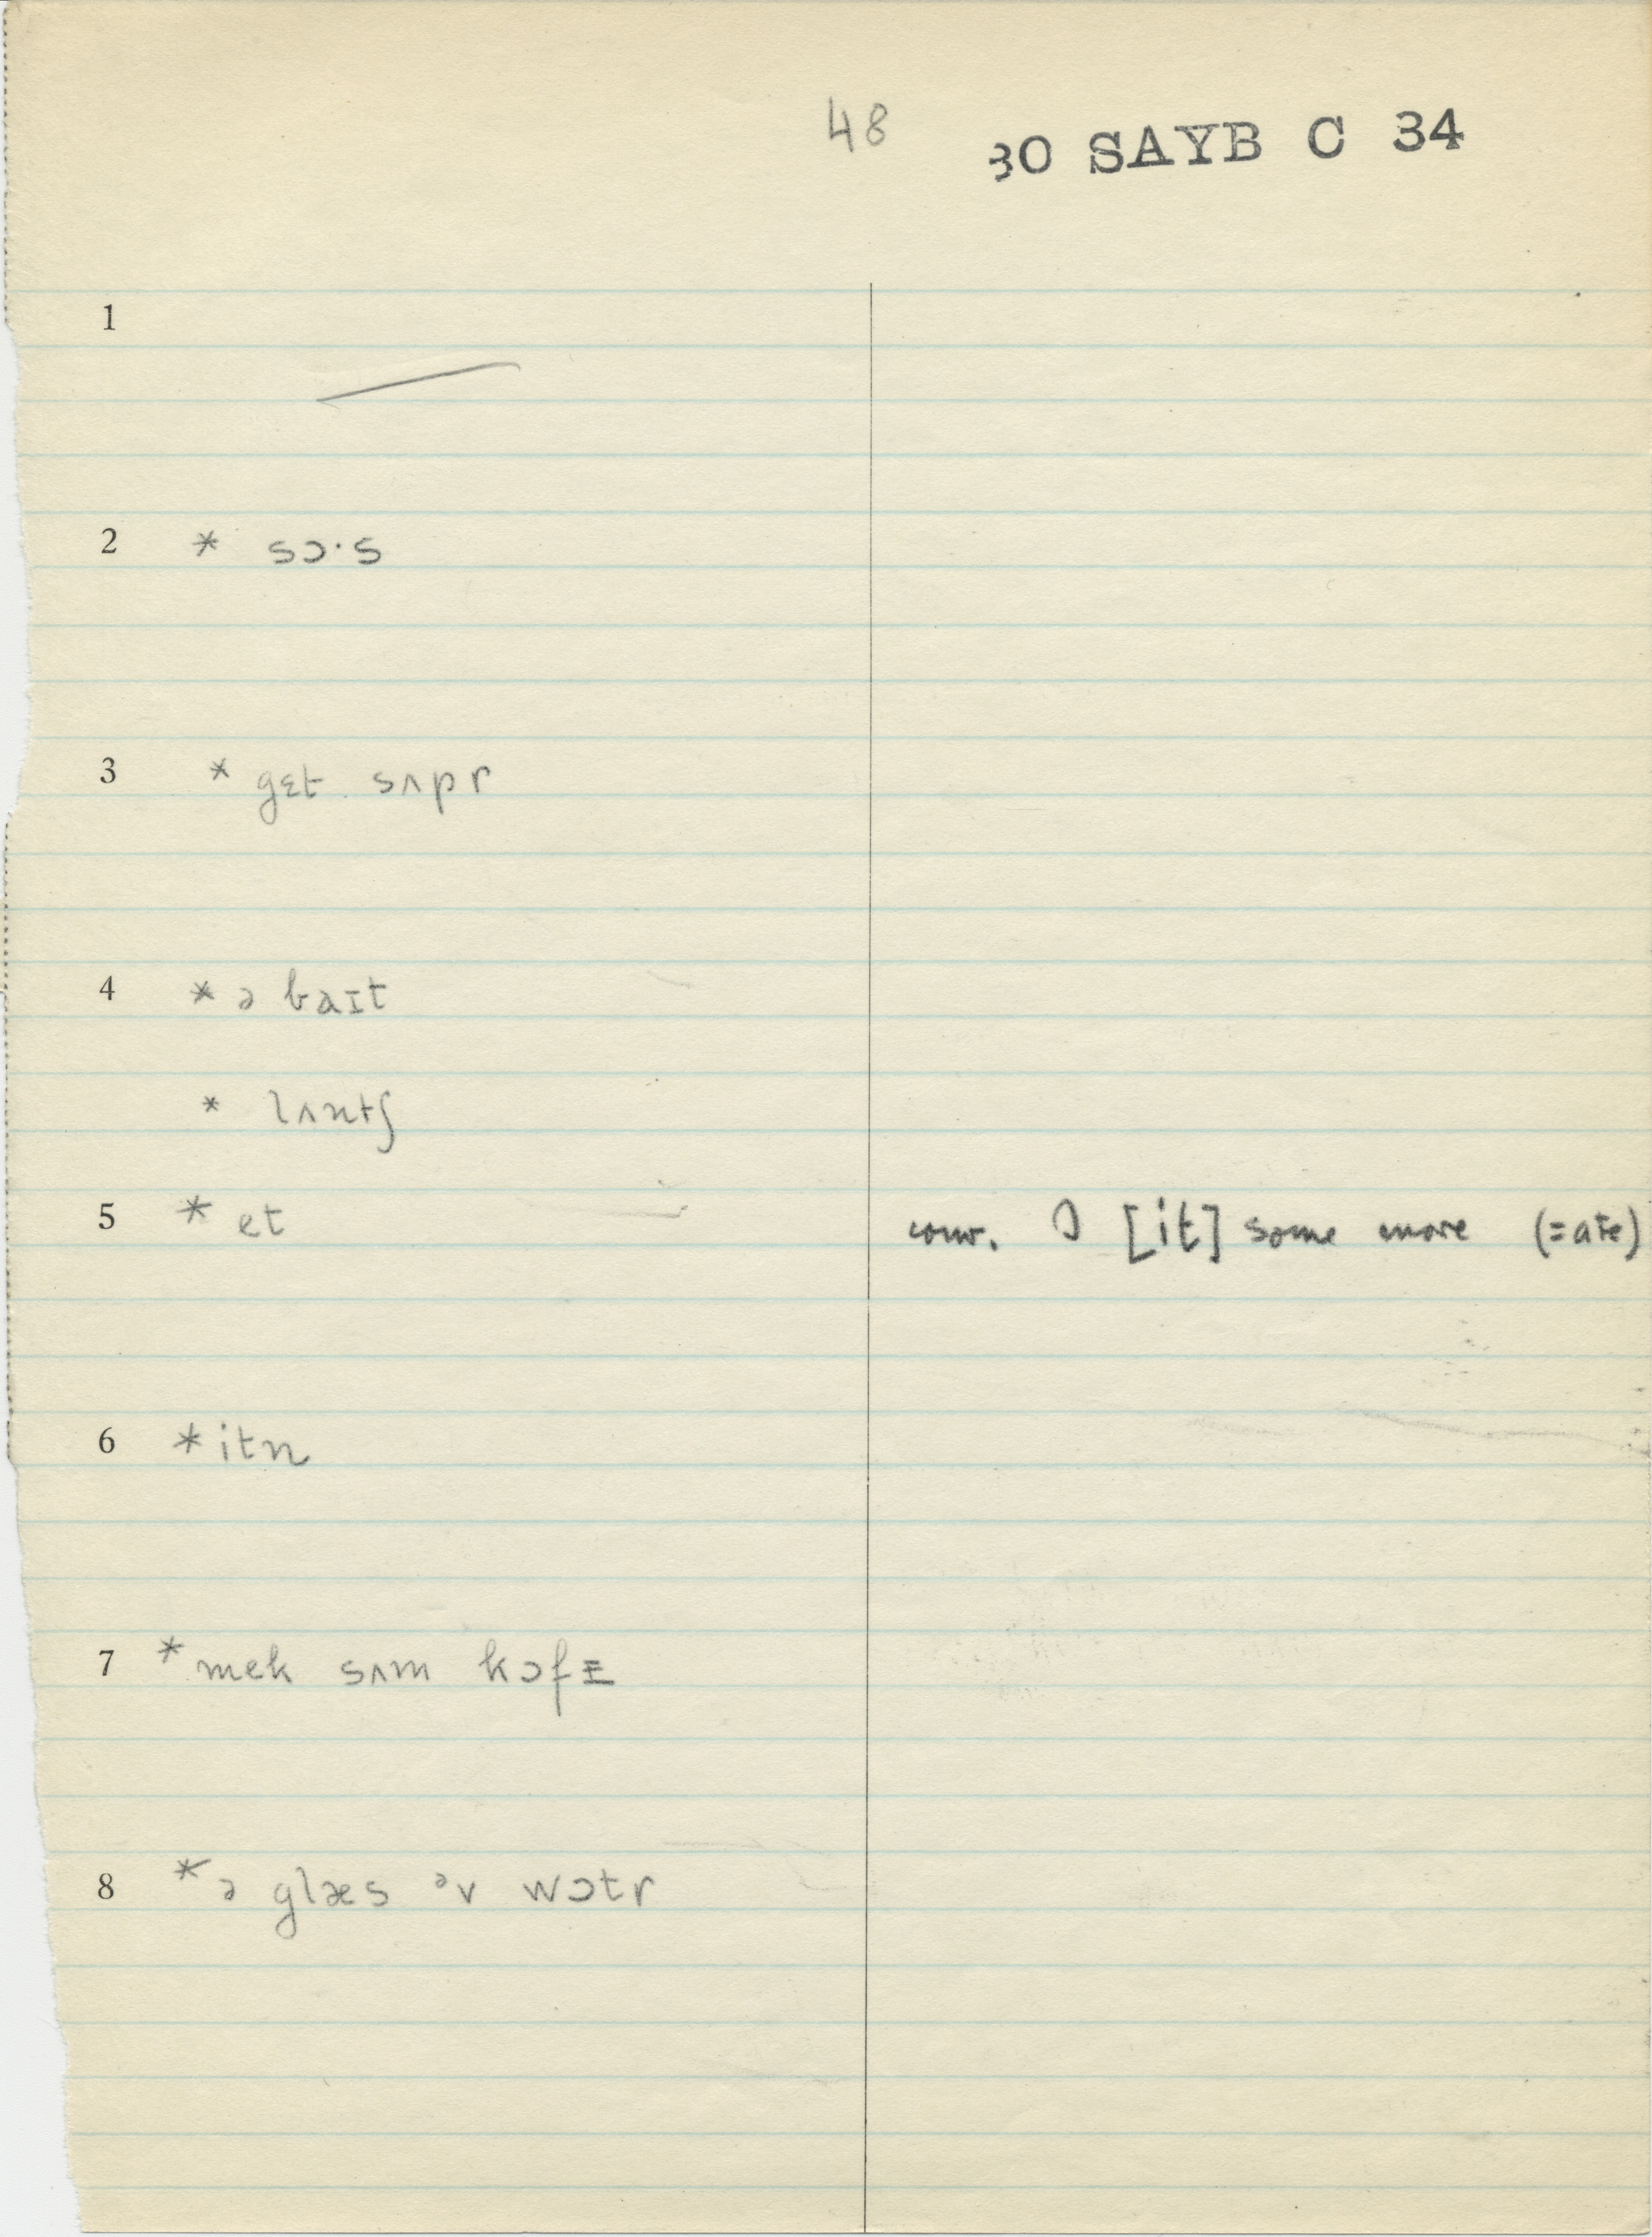 48
30 SAYB C 34
1
2 * sɔ·s
3 * gɛt sʌpr
4 * ə baɪt
* lʌntʃ
5 * et conv. I [it] some more (=ate)
6 * itn
7 * mek sʌm kɔfɪ
8 * ə glæs ᵊv wɔtr